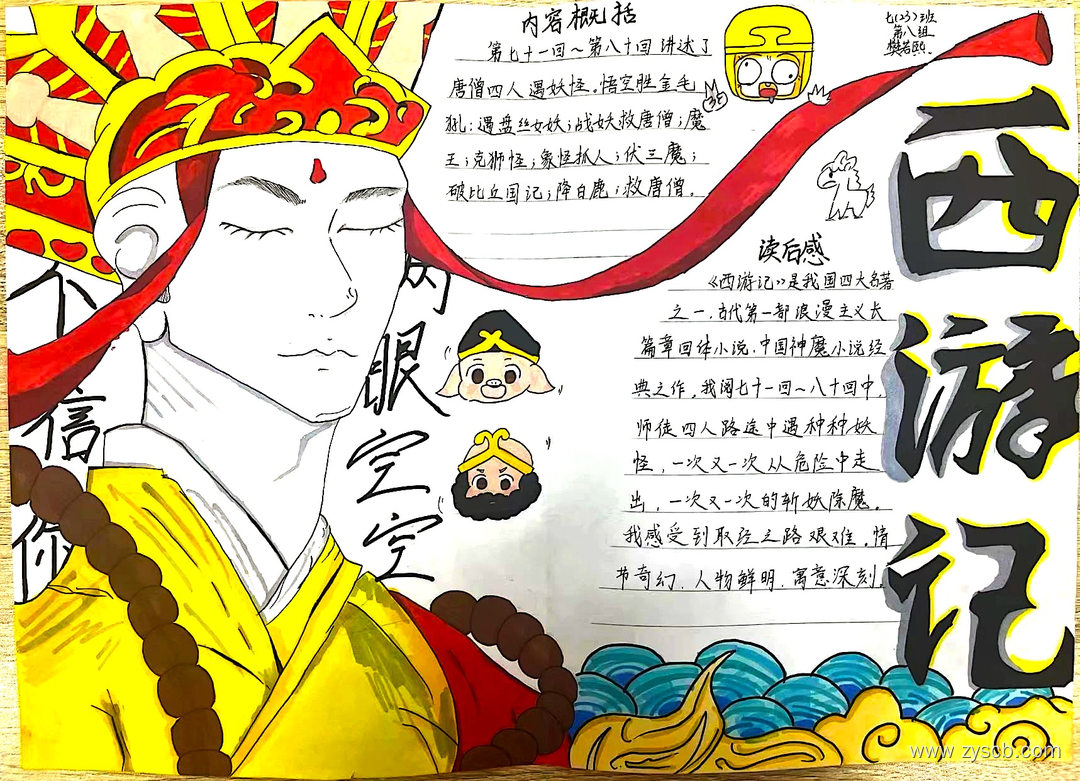 内容概括
第七十一回~第八十回讲述了
唐僧四人遇妖怪。悟空胜金毛
犼；遇盘丝女妖；战妖救唐僧；魔
王；克狮怪；象怪抓人；伏三魔；
破比丘国记；降白鹿；救唐僧。
七(23)班
第八组
樊若熙
西游记
读后感
《西游记》是我国四大名著
之一，古代第一部浪漫主义长
篇章回体小说，中国神魔小说经
典之作，我阅七十一回~八十回中，
师徒四人路途中遇种种妖
怪，一次又一次从危险中走
出，一次又一次的斩妖除魔。
我感受到取经之路艰难，情
节奇幻，人物鲜明，寓意深刻。
两眼空空
不信你
www.zyscb.com